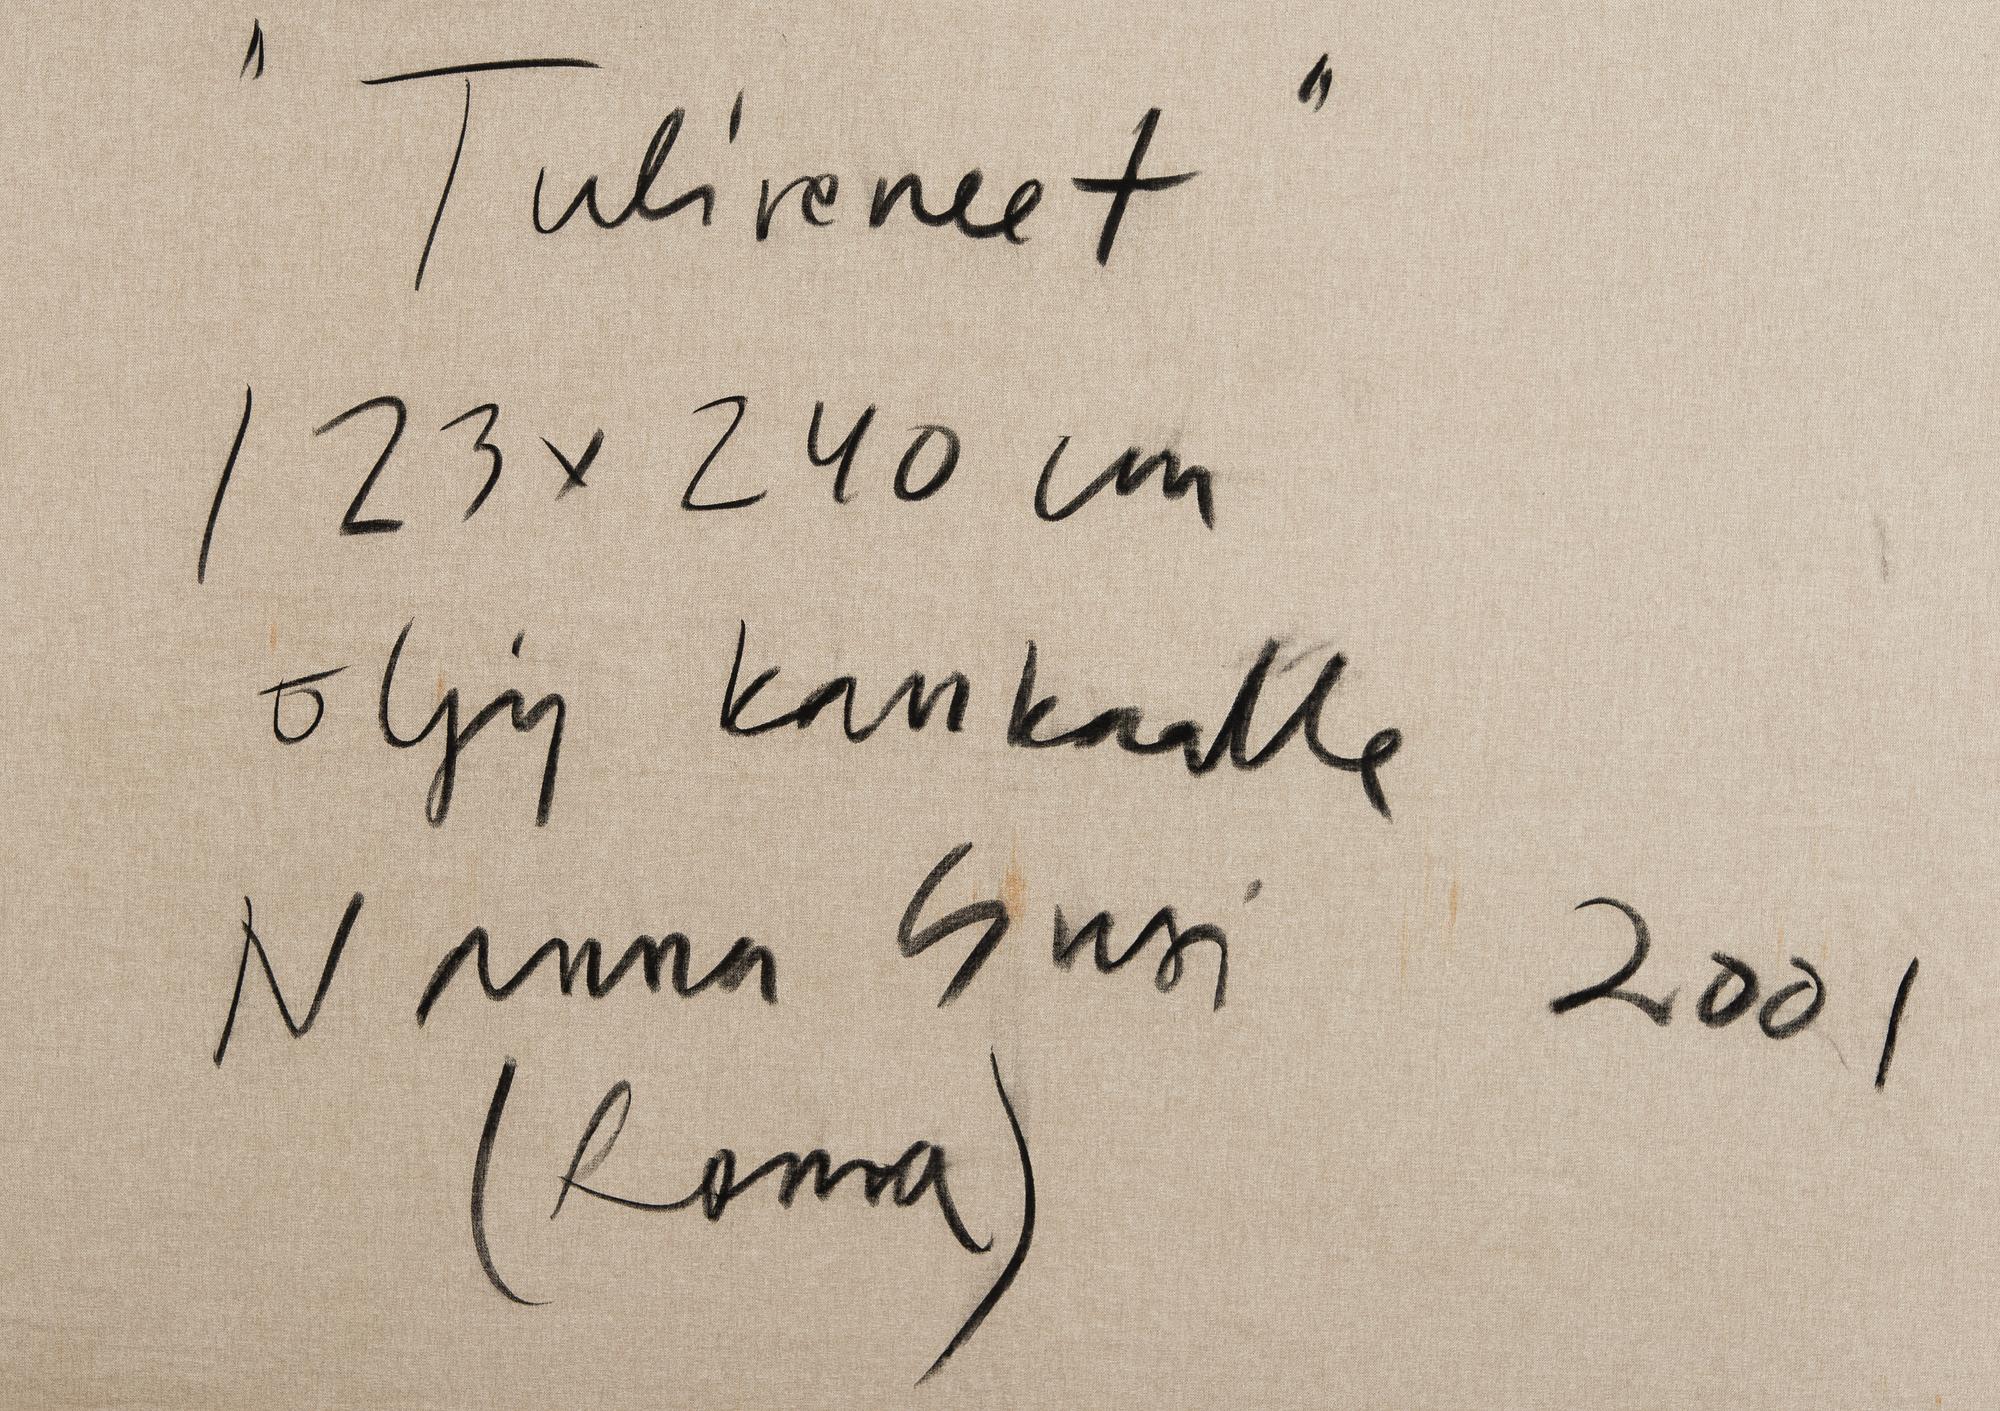 "Tulireneet"
123x240 cm
öljy kankaalle
Nanna Susi 2001
(Roma)